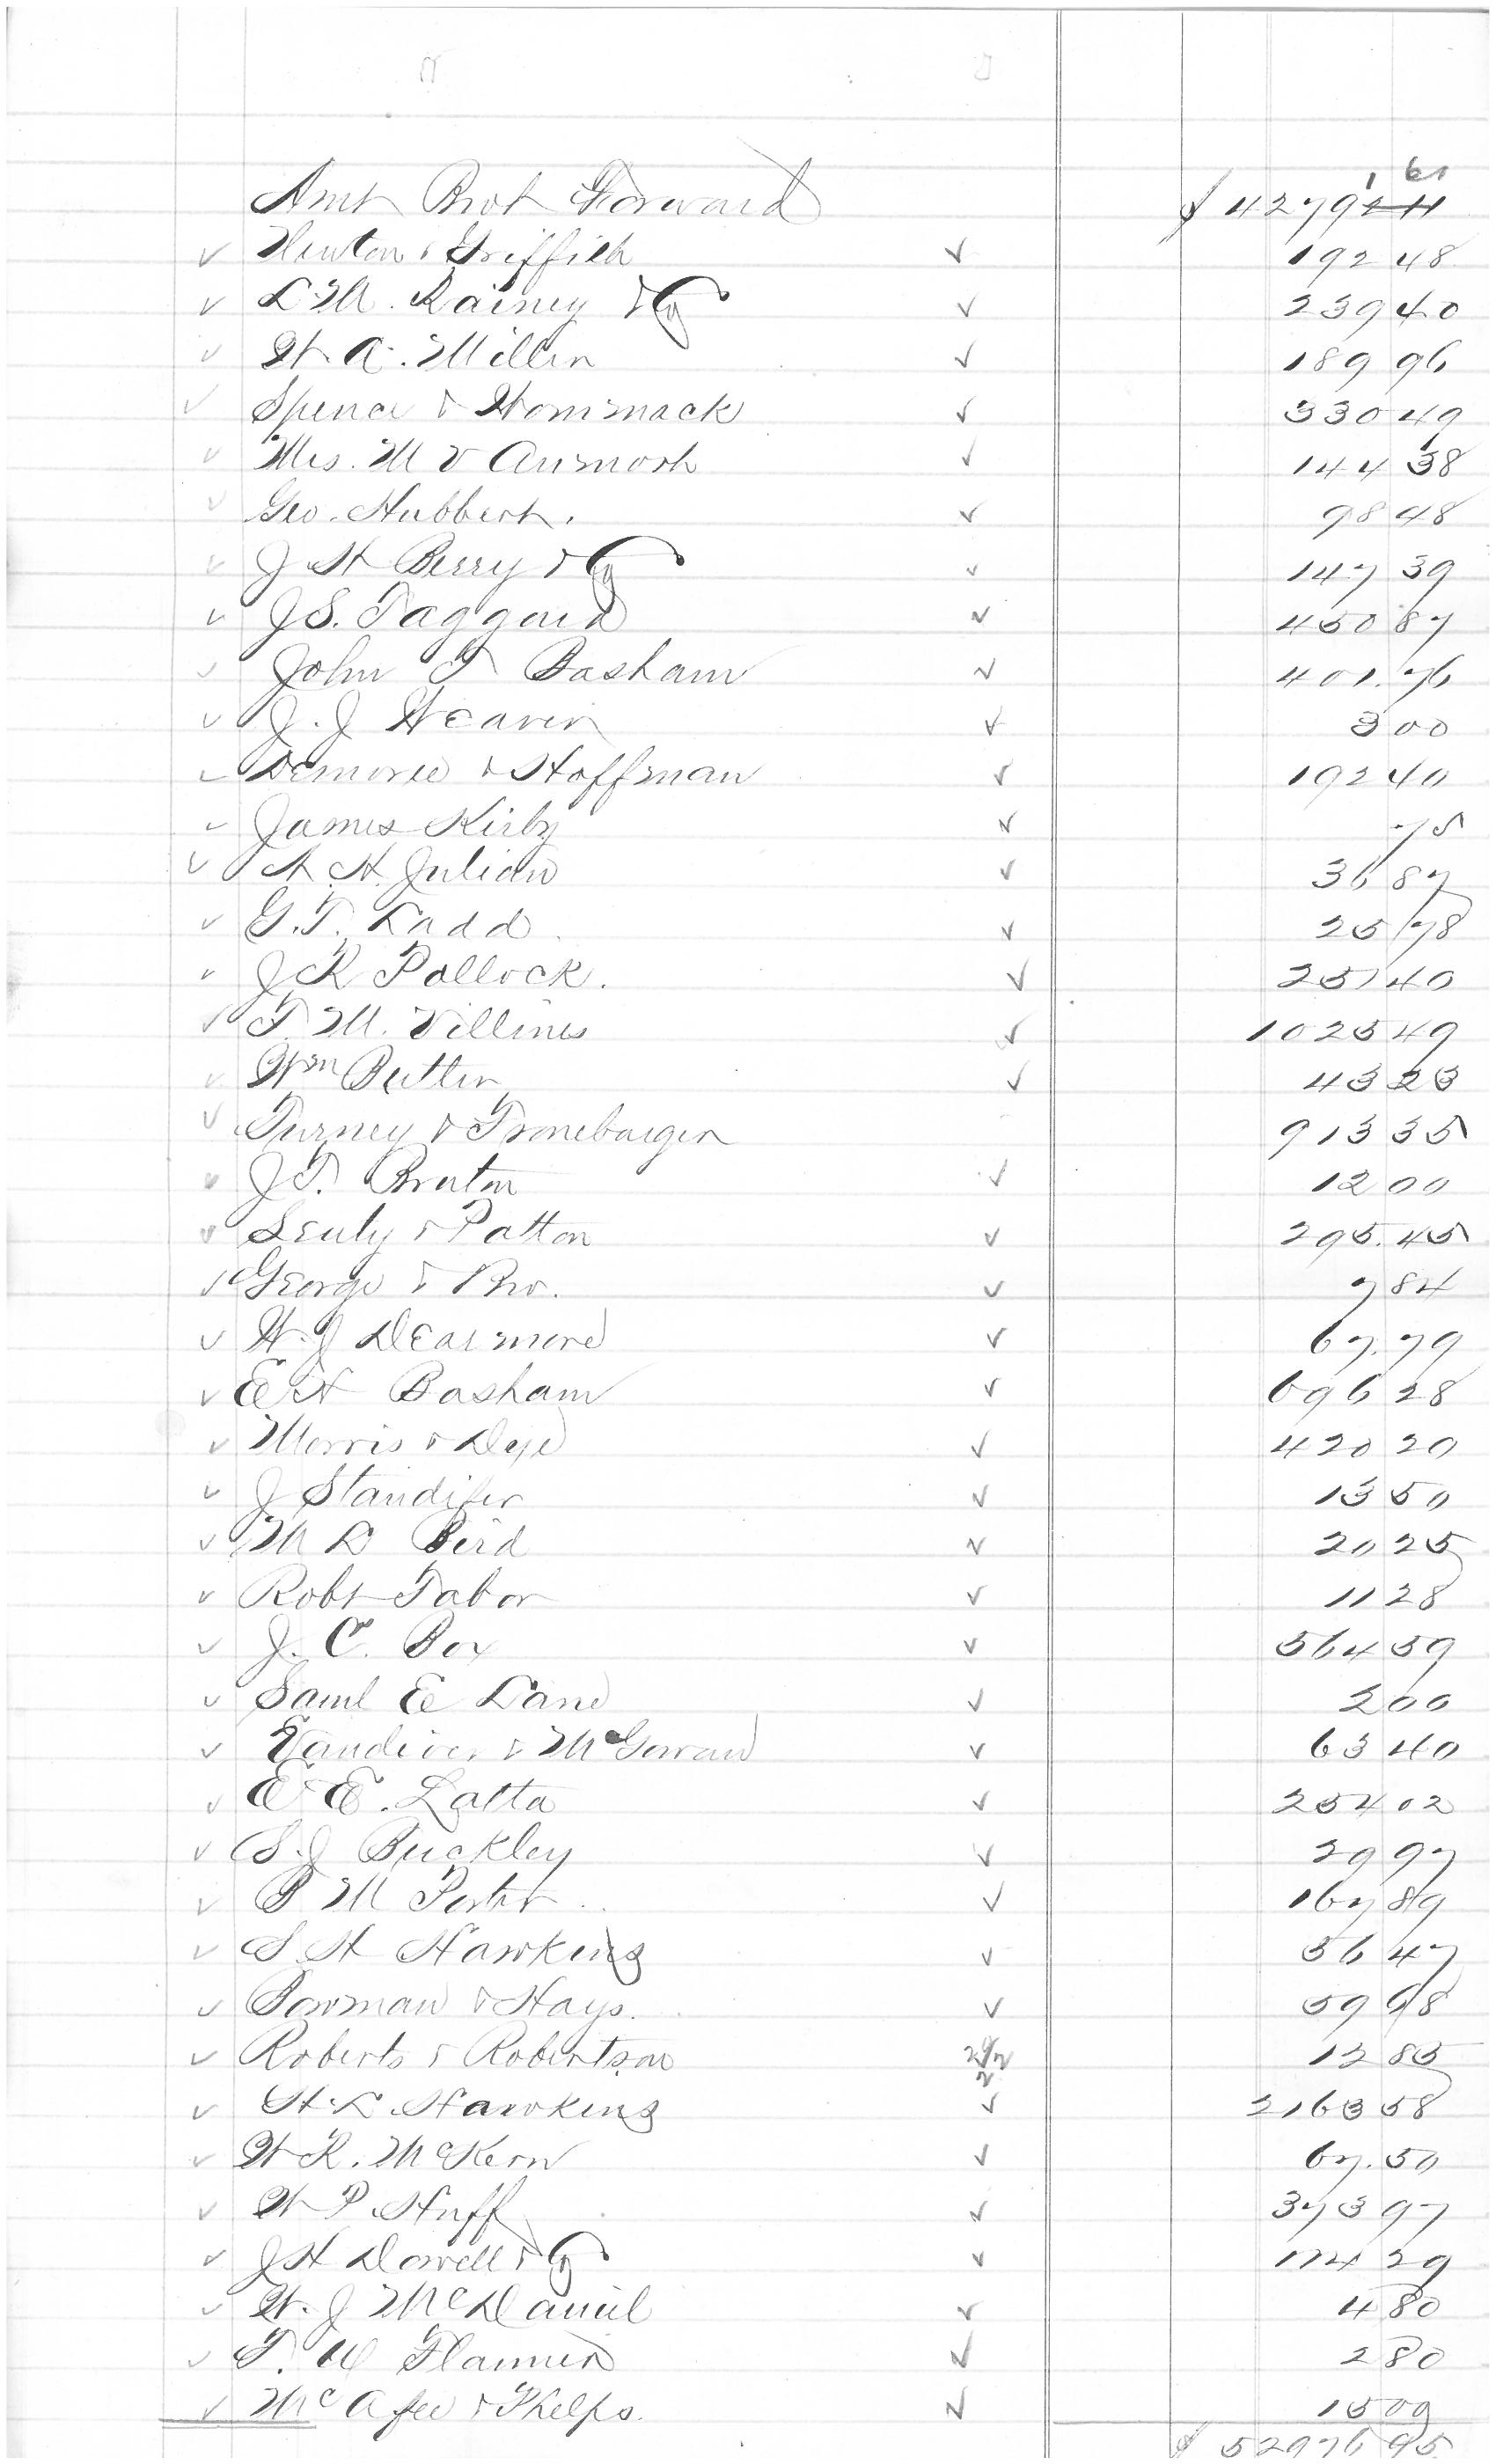 Amt Brot Forward $ 42791 61
Newton & Griffith 192 48
L. M. Rainey & Co 239 40
W. A. Miller 189 96
Spence & Wommack 330 49
Mrs. M V 144 38
Geo. Hubbert. 98 48
J H Berry & Co 147 39
J S. Taggard 450 87
John T Basham 401.76
J. J Weaver 3 00
Demoree & Hoffman 192 40
James Kirby 75
A. H. Julian 36 87
G. T. Ladd 25 78
J R Pollock. 257 40
T. M. Villines 1025 49
Wm Butler 43 23
Turney & Tronebarger 913 35
J T. Bruton 12 00
Seuly & Patton 295.45
George & Bro. 7 84
W. J Dearmore 67.79
E H Basham 696 28
Morris & Dye 420 20
J Standifer 13 50
M D Bird 20 25
Robt Tabor 11 28
J. C. Box 564 59
Saml E Lane 2 00
Vandiver & McGowan 63 40
E E. Latta 254 02
S. J Buckley 29 97
B M Porter 167 89
S H Hawkins 56 47
Bowman & Hays. 59 68
Roberts & Robertson 12 85
H. L. Hawkins 2163 58
W R. McKern 67.50
W P Huff 373 97
J H Dowell & Co 174 29
W. J McDaniel 4 80
T. W 2 80
McAfee & Phelps. 15 09
$ 52976 95